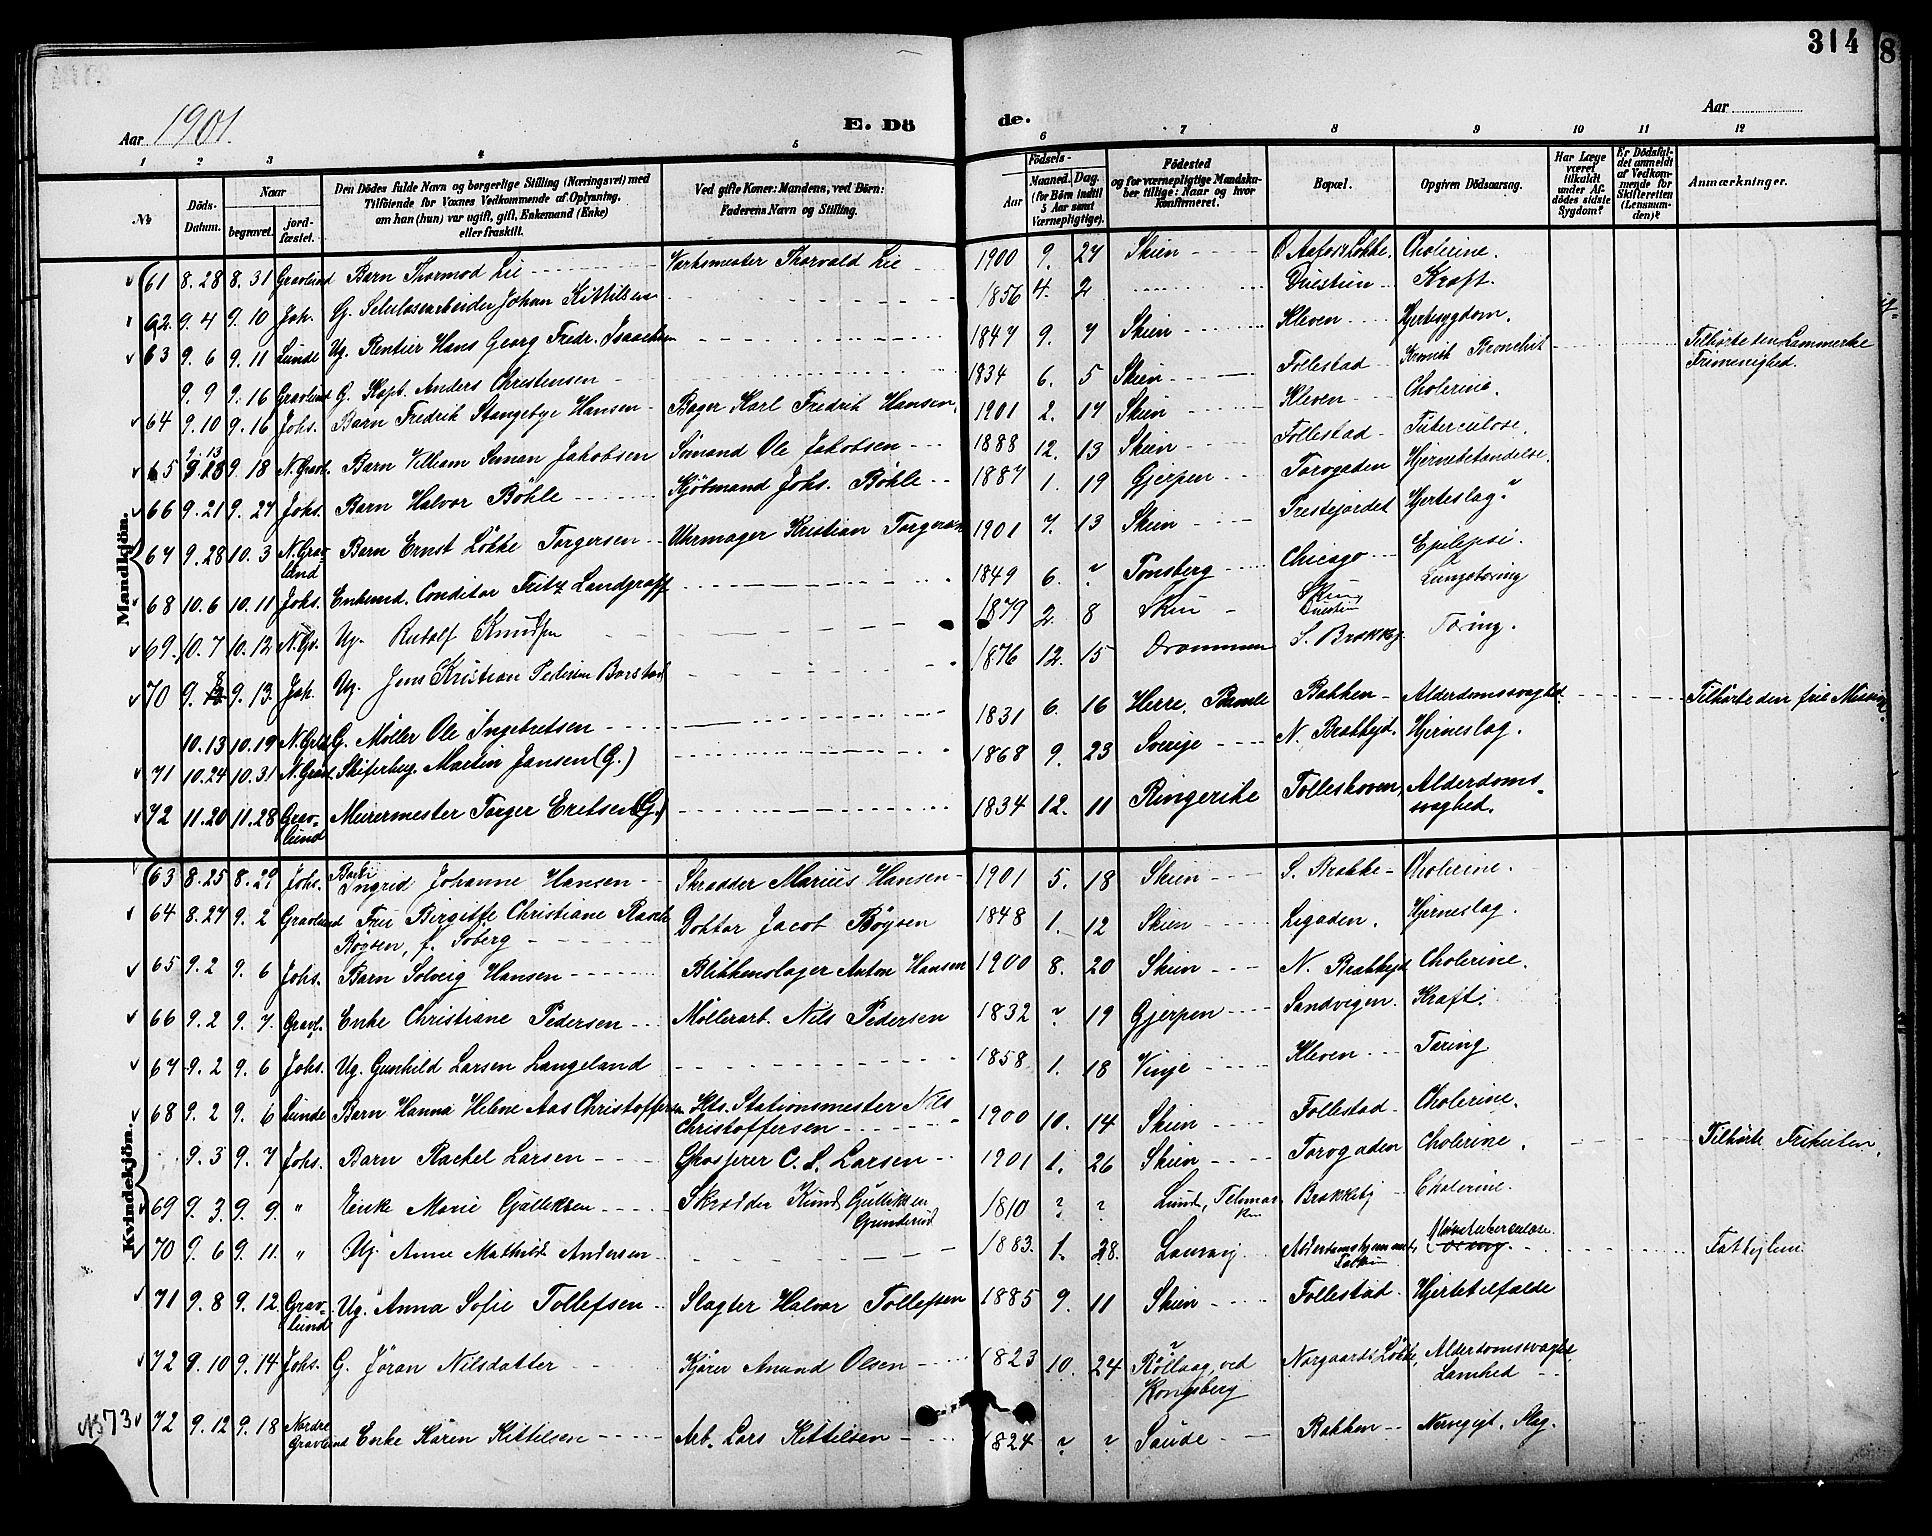 314
8
Aar 1901.
E. Dö de.
Aar
1 2 3 4 5 6 7 8 9 10 11 12
No
Döds-Datum.
Naar begravet. jordfæstet.
Den Dödes fulde Navn og borgerlige Stilling (Næringsvei) med Tilföiende for Voxnes Vedkommende af Oplysning, om han (hun) var ugift, gift, Enkemand (Enke) eller fraskilt.
Ved gifte Koner: Mandens, ved Börn: Faderens Navn og Stilling.
Födsels- Aar Maaned. Dag. (for Börn indtil 5 Aar samt Værnepligtige).
Födested og for værnepligtige Mandskaber tillige: Naar og hvor konfirmeret.
Bopæl.
Opgiven Dödsaarsag.
Har Læge været tilkaldt under Afdödes sidste Sygdom?
Er Dödsfaldet anmeldt af Vedkommende for Skifteretten (Lensmanden)?
Anmærkninger.
Mandkjön.
61 8.28 8.31 Gravlund Barn Thormod Lie Værksmester Thorvald Lie 1900 9. 27 Skien Ø. Aafoss Løkke. Cholerine.
62. 9.4 9.10 Joh. G. Seluloсearbeider Johan Kittilsen 1856 4. 2 Duestien Kræft.
63 9.6 9.11 Lunde Ug. Rentier Hans Georg Fredr. Isaachsen 1847 9. 7 Skien Kleven Hjertesygdom.
9.9 9.16 Gravlund G. Kapt. Anders Christensen 1834 6. 5 Skien Follestad Kronisk Bronchit Tilhørte den Lammerske Frimenighed.
64 9.10 9.16 Johs. Barn Fredrik Stangebye Hansen Bager Karl Fredrik Hansen. 1901 2. 17 Skien Kleven Cholerine.
65 9.13 9.18 N. Gravl. Barn Villiam Seman Jakobsen Sømand Ole Jakobsen 1888 12. 13 Skien Follestad Tuberculose.
66 9.21 9.27 Johs. Barn Halvor Bøhle Kjøbmand Johs. Bøhle 1887 1. 19 Gjerpen Torvgaden Hjernebetændelse.
67 9.28 10.3 N. Gravlund Barn Ernst Løkke Torgersen Uhrmager Kristian Torgersen 1901 7. 13 Skien Prestejordet Hjerteslag?
68 10.6 10.11 Johs. Enkemd. Conditor Fritz Landgraff 1849 6. ? Tønsberg Chicago Epilepsi.
69. 10.7 10.12 N. Gr. Ug. Rudolf Knudsen 1879 2 8 Skien Skien Duestien Lungetæring
70 9.8 9.13. Joh. Ug. Jens Kristian Pedersen Borstad 1876 12. 15 Drammen S. Brækkej. Tæring.
10.13 10.19 N. Grl. G. Møller Ole Ingebretsen 1831 6. 16 Herre, Bamle Bakken Alderdomssvaghed. Tilhørte den frie Mission.
71 10.24 10.31 N. Gravl. Skiferhug. Martin Jansen (G.) 1868 9. 23 Sverige N. Brækkejd. Hjerneslag.
72 11.20 11.28 Gravlund Murermester Torger Eretsen (G.) 1834 12. 11 Ringerike Folleshoven, Alderdomssvaghed.
Kvindekjön.
63 8.25 8.29 Johs. Barn Ingrid Johanne Hansen Skrædder Marius Hansen 1901 5. 18 Skien S. Brække Cholerine.
64 8.27 9.2 Gravlund Frue Birgitte Christiane Rasch Bøysen, f. Soberg Doktor Jacob Bøysen 1848 1. 12 Skien Ligaden. Hjerneslag.
65 9.2 9.6 Johs. Barn Solveig Hansen Blikkenslager Anton Hansen 1900 8. 20 Skien N. Brækkejd Cholerine.
66 9.2 9.7. Gravl. Enke Christiane Pedersen Møllerarb. Nils Pedersen 1832 ? 19 Gjerpen Sandvigen. Kræft.
67 9.2 9.6 Johs. Ug. Gunhild Larsen Langeland 1858 1. 18 Vinje Kleven Tæring.
68 9.2 9.6 Lunde Barn Hanna Helene Aas Christoffersen Kts. Stationsmester Nils Christoffersen 1900 10. 14 Skien Follestad Cholerine.
9.3 9.7 Johs. Barn Rachel Larsen Grosserer C. L. Larsen 1901 1. 26 Skien Torvgaden Cholerine. Tilhørte Frikirken.
69 9.3. 9.9. " Enke Marie Gulliksen Skrædder Knud Gulliksen Gunderud 1810 ? ? Lund, Telemarken Brækkebj Cholerine.
70 9.6 9.11. " Ug. Anne Mathild Andersen 1883. 1. 28. Laurvig Alderdomshjemmet, Tuberculose. Fattiglem
71 9.8 9.12. Gravlund Ug. Anna Sofie Tollefsen Slagter Halvor Tollefsen 1885 9. 11 Skien Follestad Hjertetilfælde
72 9.10 9.14 Johs. G. Jøran Nilsdatter Kjører Amund Olsen 1823 10. 24 Røllaag, ved Kongsberg Norgaards Løkke, Alderdomssvaghd. Lamhed
No 73 72 9.12 9.18 Nordre Gravlund Enke Karen Kittilsen Arb. Lars Kittilsen 1824 ? ? Saude Bakken Nervegigt. Slag.